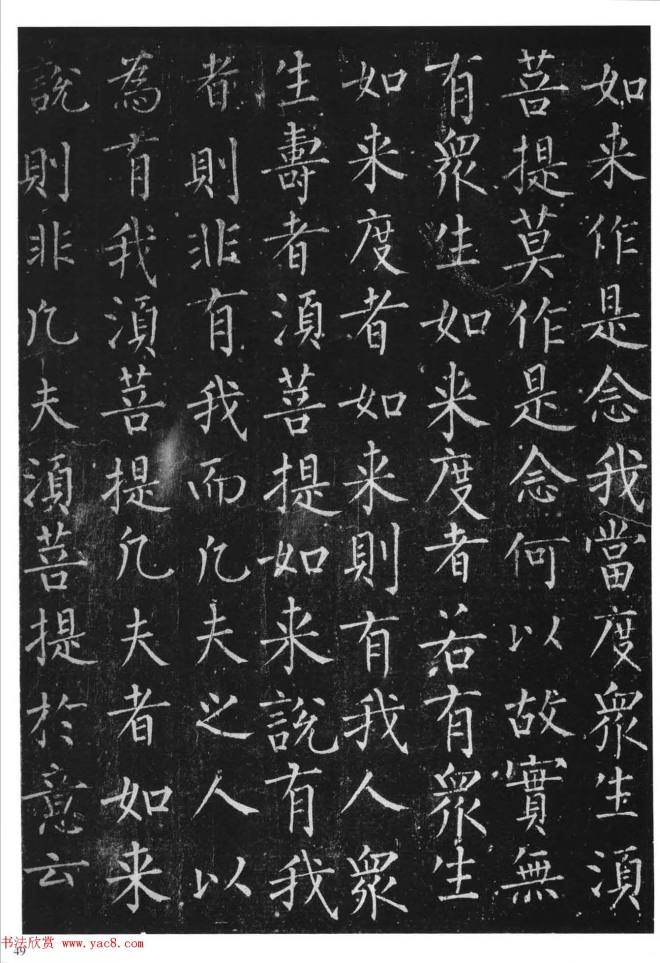 如来作是念我當度衆生須
菩提莫作是念何以故實無
有衆生如来度者若有衆生
如来度者如来則有我人衆
生壽者須菩提如来說有我
者則非有我而凡夫之人以
為有我須菩提凡夫者如来
說則非凡夫須菩提於意云
书法欣赏 www.yac8.com
49